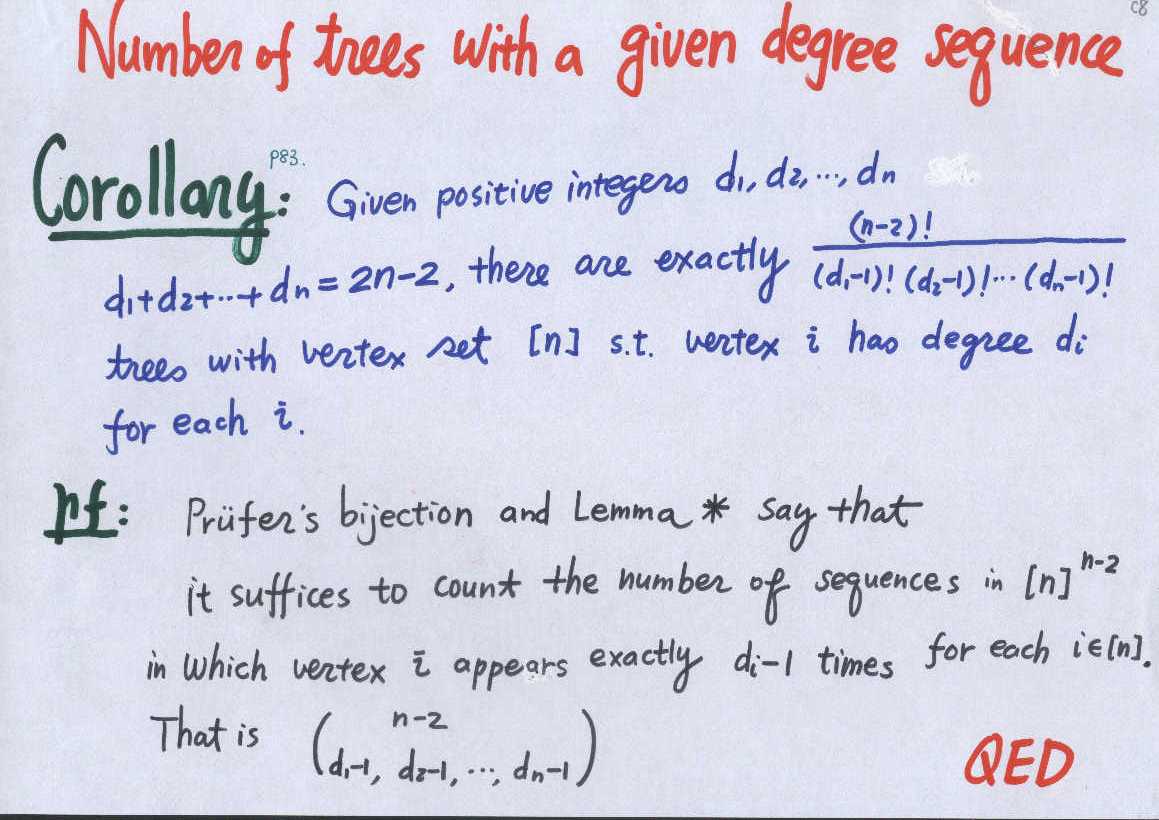 C8
Number of trees with a given degree sequence
Corollary: P83. Given positive integers d₁, d₂, ..., dₙ
d₁+d₂+...+dₙ = 2n-2, there are exactly (n-2)! / (d₁-1)! (d₂-1)! ... (dₙ-1)!
trees with vertex set [n] s.t. vertex i has degree dᵢ
for each i.
pf: Prüfer's bijection and Lemma * say that
it suffices to count the number of sequences in [n]ⁿ⁻²
in which vertex i appears exactly dᵢ-1 times for each i∈[n].
That is (n-2 
d₁-1, d₂-1, ..., dₙ-1)
QED